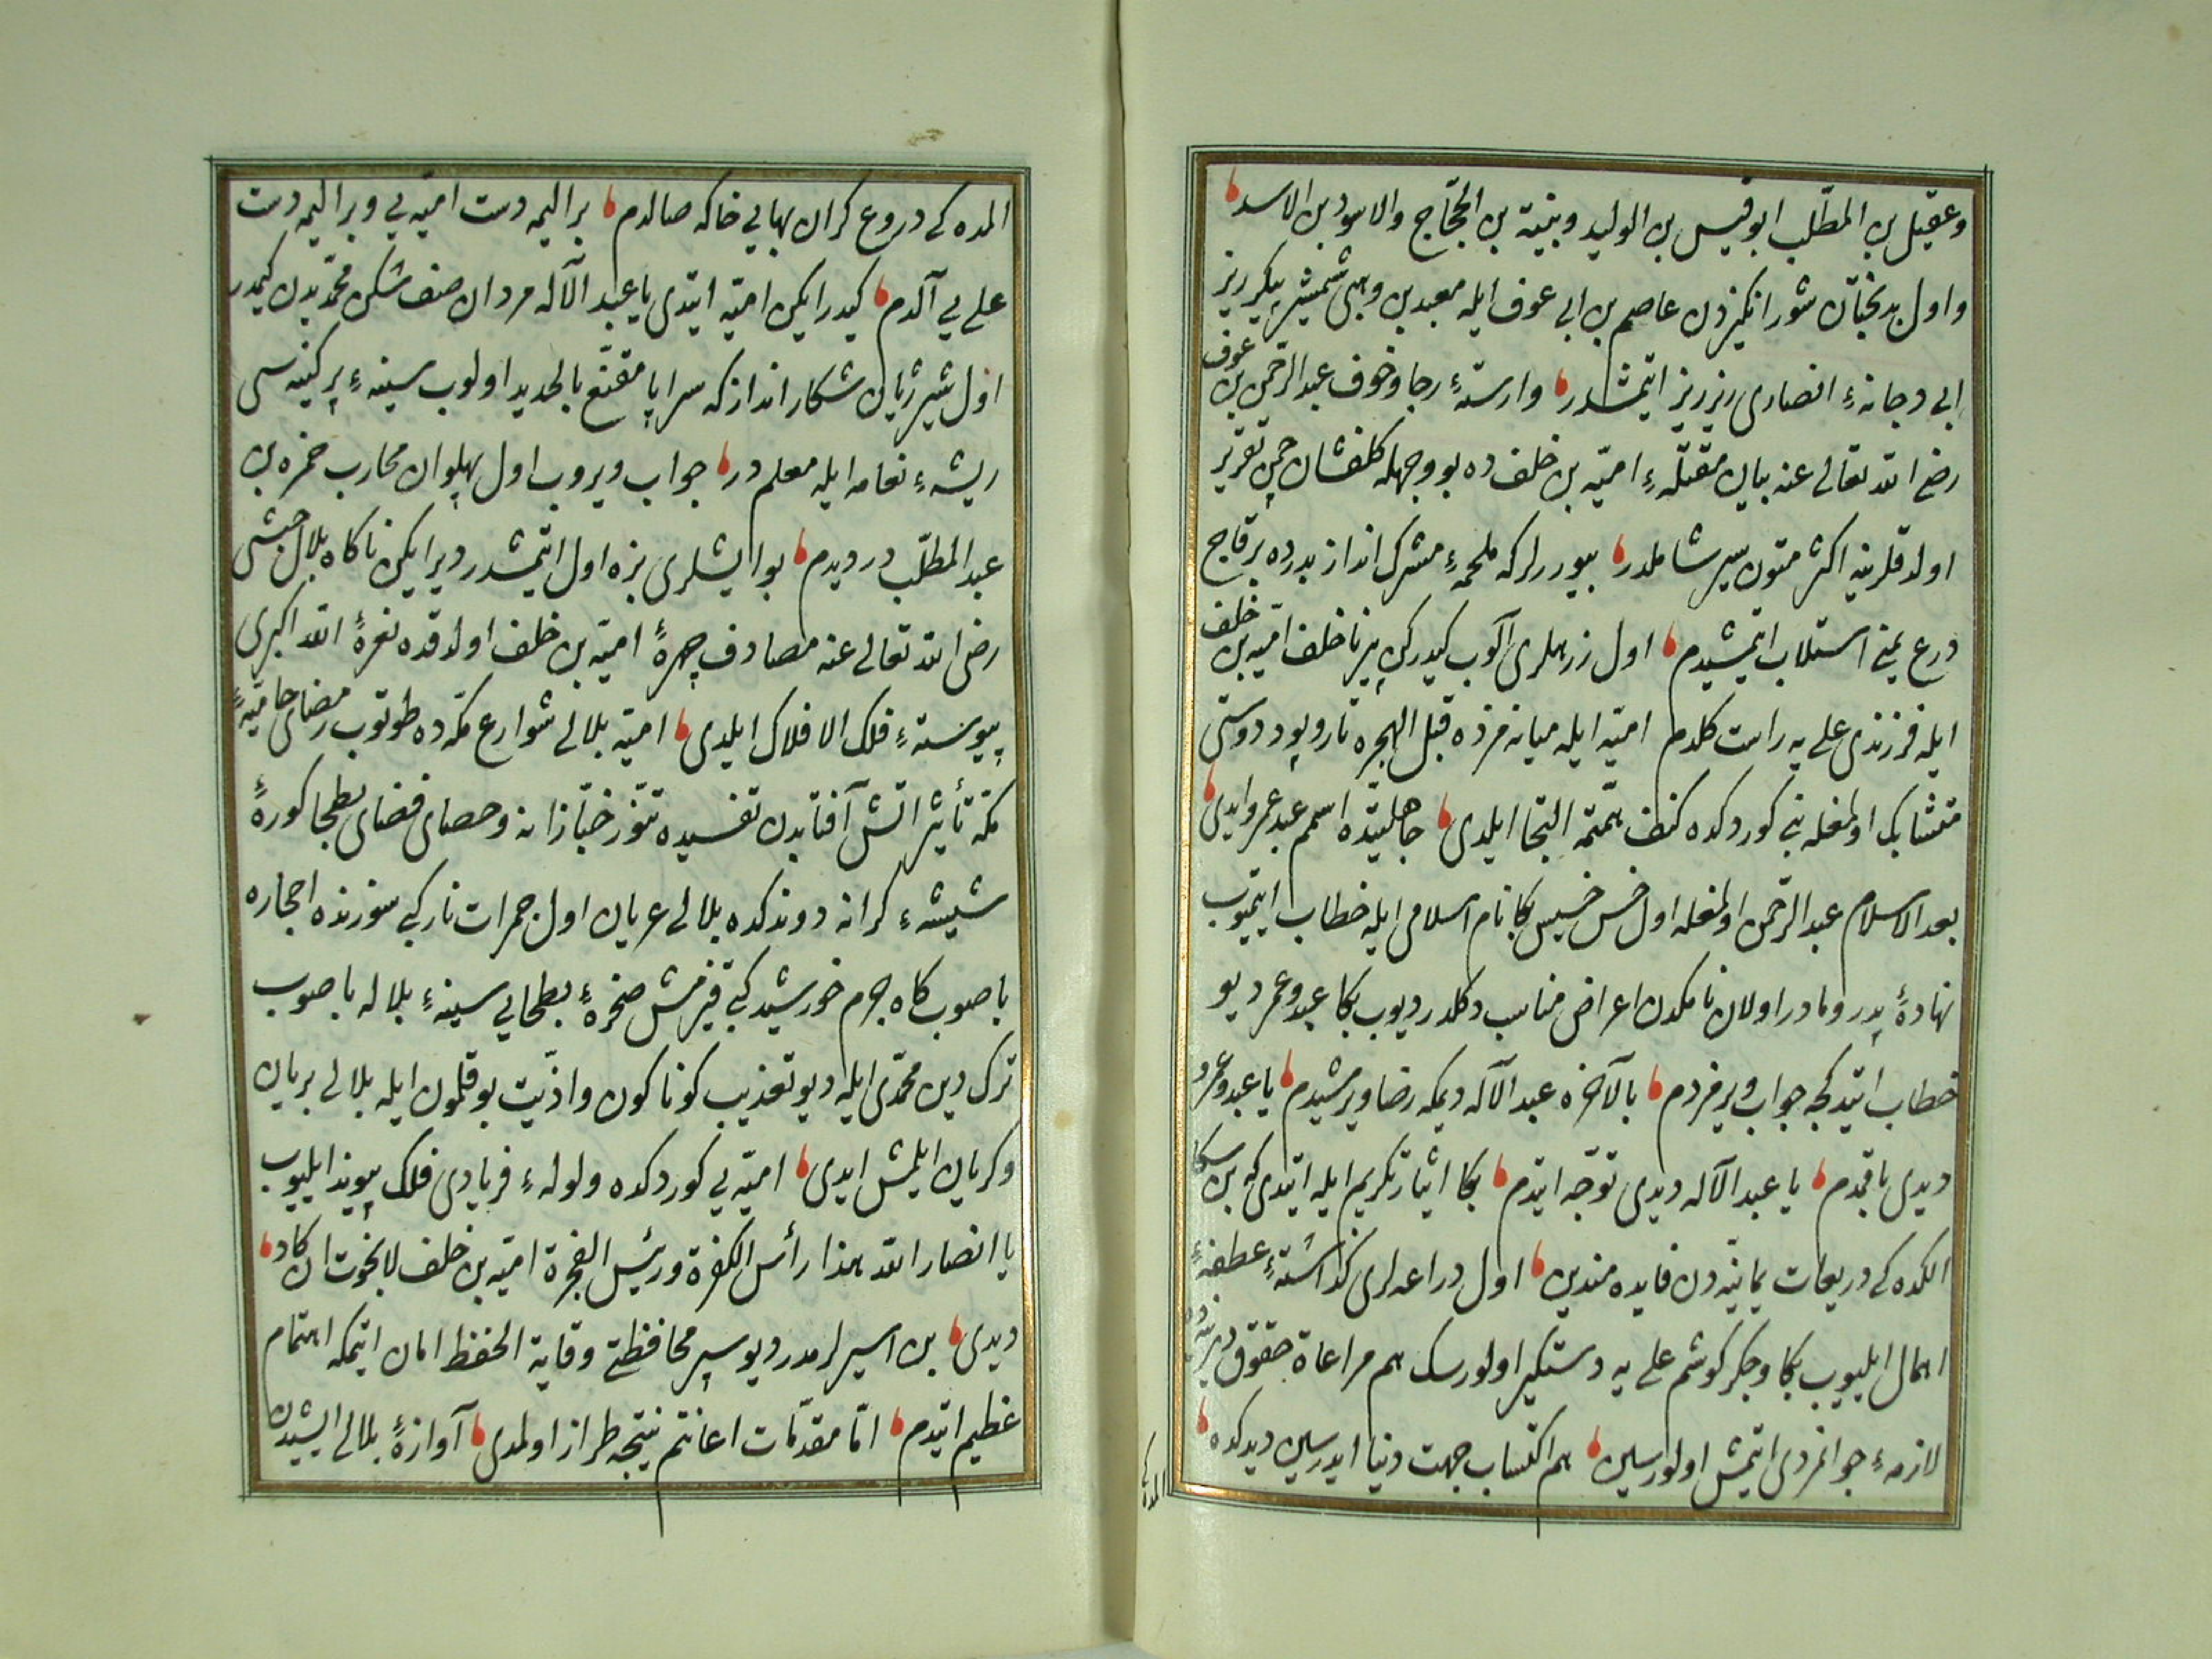 وعقيل بن المطلّب ابو قيس بن الوليد ونبيّة بن الحجّاج والاسود بن الاسد
واول بدبختان شور انكيزدن عاصم بن ابى عوف ايله معبد بن وهبى شمشير پيكر ريز
ابى دجانهٔ انصارى ريز ريز ايتمشدر وارستهٔ رجا وخوف عبد الرّحمن بن عوف
رضى الله تعالى عنه بيان مقتلهٔ اميّه بن خلف ده بو وجهله كلفشان چمن تقرير
اولدقلرينه اكثر متون سير شاملدر بيوررلر كه ملحمهٔ مشرك انداز بدرده بر قاچ
درع يمنى استلاب ايتمشيدم اول زرهلرى آلوب كيدركن پير ناخلف اميّه بن خلف
ايله فرزندى على يه راست كلدم اميّه ايله ميانه مزده قبل الهجره تار وپود دوستى
متشابك اولمغله بنى كوردكده كنف همّتمه التجا ايلدى جاهليّتده اسمم عبد عمرو ايدى
بعد الاسلام عبد الرّحمن اولمغله اول خس خسيس بكا نام اسلامى ايله خطاب ايتميوب
نهادهٔ پدر ومادر اولان نامكدن اعراض مناسب دكلدر ديوب بكا عبد وعمر ديو
خطاب ايتدكجه جواب ويرمزدم بالآخره عبد الآله ديمكه رضا ويرمشيدم يا عبد وعمرو
ديدى باقمدم يا عبد الآله ديدى توجّه ايتدم بكا ايثار تكريم ايله ايتدى كه بن سكا
الكده كى دريعات يمانيّه دن فايده مندين اول دراعه لرى كذاشتهٔ عطفهٔ
اهمال ايليوب بكا وجكر كوشم على يه دستكير اولورسك هم مراعاة حقوق ديرينه
لازمهٔ جوانمردى ايتمش اولورسين هم اكتساب جهت دنيا ايدرسين ديدكده
المده كى
المده كى دروع كران بهايى خاكه صالدم بر اليمه دست اميّه يى وبر اليمه دست
على يى آلدم كيدر ايكن اميّه ايتدى يا عبد الآله مردان صف شكن محمّديدن كيمدر
اول شير ژيان شكار انداز كه سراپا مقنّع بالحديد اولوب سينهٔ پر كينه سى
ريشهٔ نعامه ايله معلمدر جواب ويروب اول پهلوان محارب حمزه بن
عبد المطلّب در ديدم بو ايشلرى بزه اول ايتمشدر دير ايكن ناكاه بلال حبشى
رضى الله تعالى عنه مصادف چهرهٔ اميّه بن خلف اولدقده نعرهٔ الله اكبرى
پيوستهٔ فلك الافلاك ايلدى اميّه بلالى شوارع مكّه ده طوتوب رمضاى حاميهٔ
مكّه تأثير اتش آفتابدن تفسيده تنّور خبّازانه وحصاى فضاى بطحا كورهٔ
شيشهٔ كرانه دوندكده بلالى عريان اول جمرات نار كبى سوزنده احجاره
باصوب كاه جرم خورشيد كبى قيزمش صخرهٔ بطحايى سينهٔ بلاله باصوب
ترك دين محمّدى ايله ديو تعذيب كوناكون واذيّت بوقلمون ايله بلالى بريان
وكريان ايلمش ايدى اميّه يى كوردكده ولولهٔ فريادى فلك پيوند ايليوب
يا انصار الله هذا رأس الكفرة ورئيس الفجرة اميّه بن خلف لا نجوت ان نجا
ديدى بن اسيرلرمدر ديو سپر محافظتى وقاية الحفظ امان ايتمكه اهتمام
عظيم ايتدم امّا مقدّمات اعانتم نتيجه طراز اولمدى آوازهٔ بلالى ايشيدن